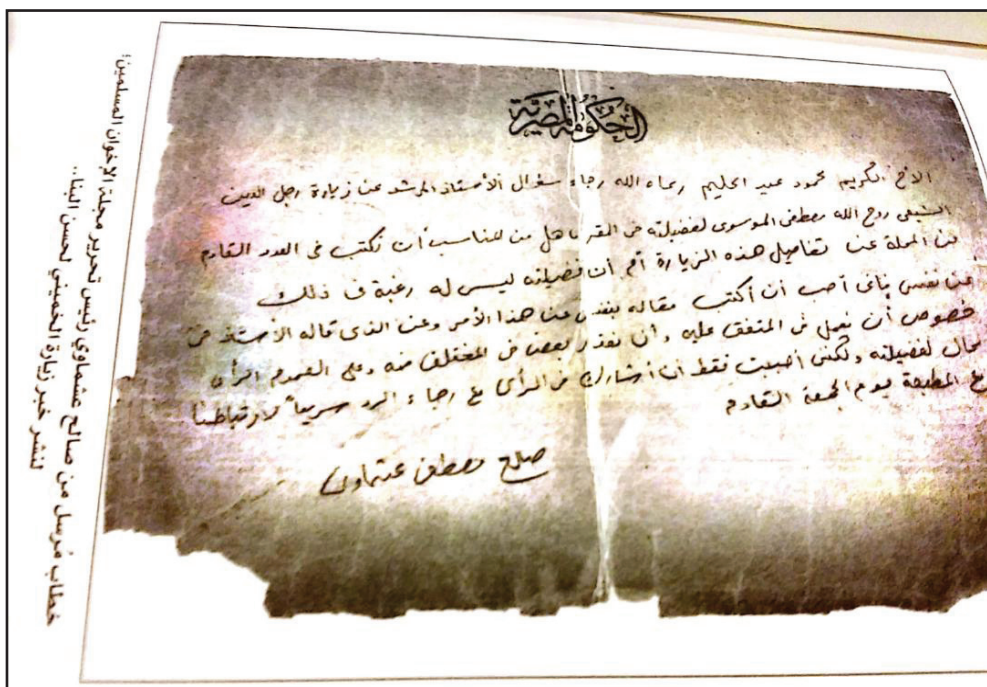 الحكومة المصرية
الأخ الكريم محمود عبد الحليم رعاه الله رجاء سؤال الأستاذ المرشد عن زيارة رجل الدين
الشيعى روح الله مصطفى الموسوى لفضيلته فى المقر هل من المناسب أن نكتب فى العدد القادم
من المجلة عن تفاصيل هذه الزيارة أم أن فضيلته ليس له رغبة فى ذلك
عن نفسى فإنى أحب أن أكتب مقاله بنفسى عن هذا الأمر وعن الذى قاله الأستاذ فى
خصوص أن نعمل فى المتفق عليه وأن نعذر بعضنا فى المختلف فيه وعلى العموم الرأى
لفضيلته ولكنى أحببت فقط أن أشاركه فى الرأى مع رجاء الرد سريعاً لارتباطنا
المطبعة يوم الجمعة القادم
صالح مصطفى عشماوى
خطاب مُرسل من صالح عشماوي رئيس تحرير مجلة الإخوان المسلمين؛
لنشر خبر زيارة الخميني لحسن البنا..